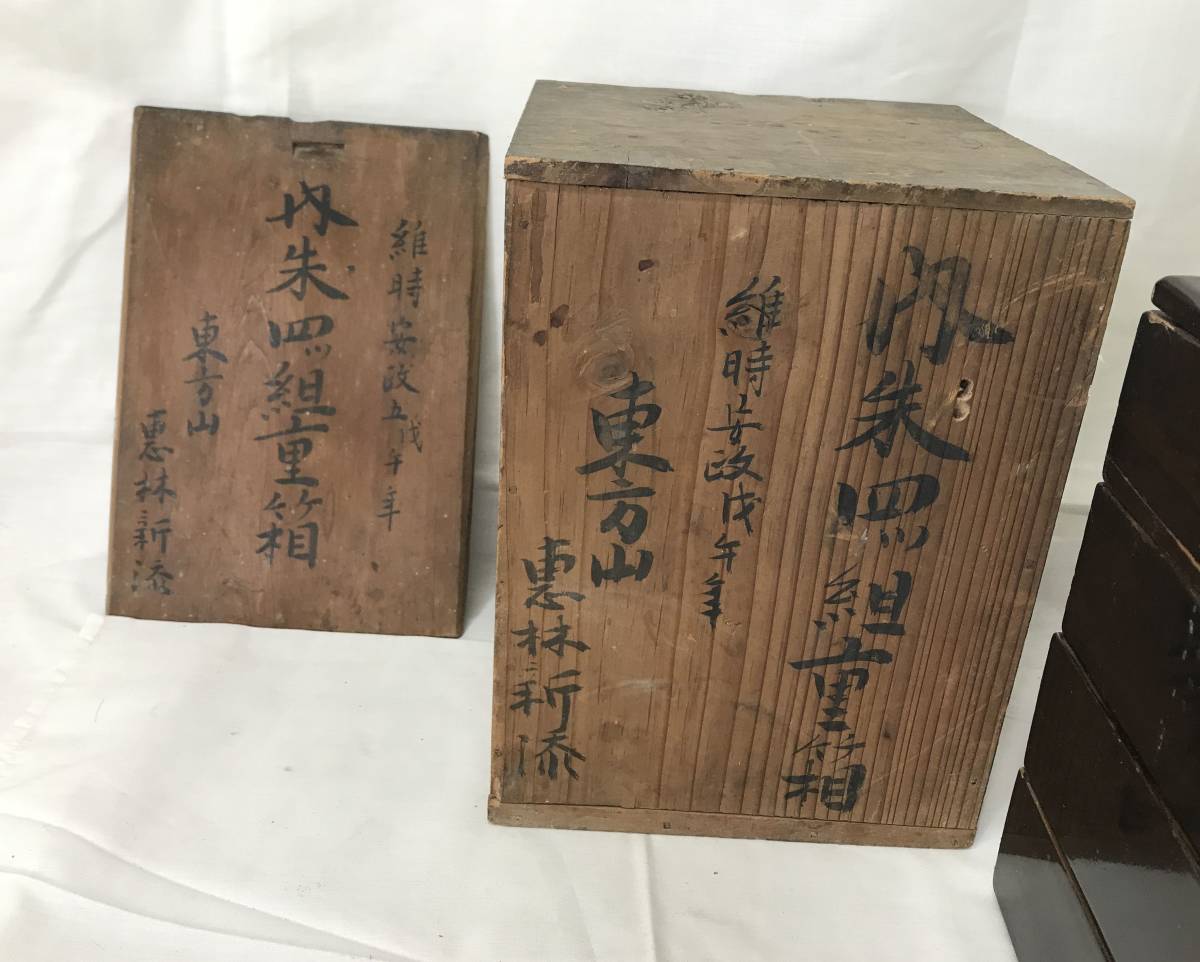 維時安政五戊午年
内朱四ツ組重箱
東方山
惠林新添
内朱四ツ組重箱
維時安政戊午年
東方山
惠林新添